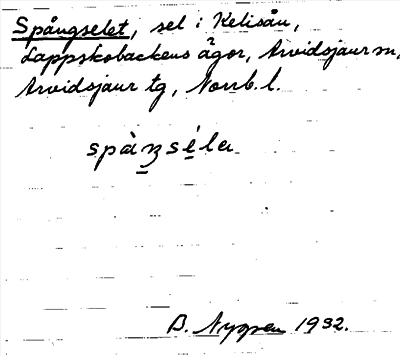 Spångselet, sel i Kelisån,
Lappskobackens ägor, Arvidsjaur sn,
Arvidsjaur tg, Norrb. l.
spàŋséla
B. Nygren 1932.